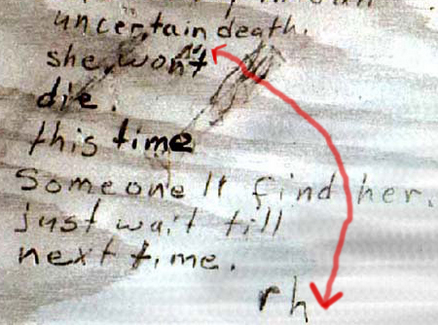 uncertain death.
she won't
die.
this time
Someone ll find her.
just wait till
next time.
rh